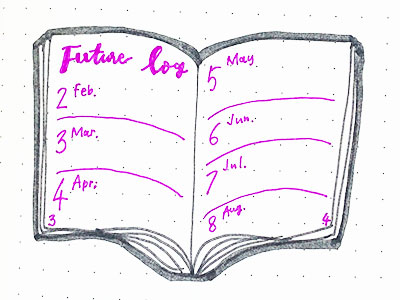 Future log
2 Feb.
3 Mar.
4 Apr.
3
5 May
6 Jun.
7 Jul.
8 Aug.
4